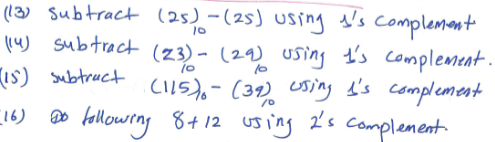 (13) subtract (25)₁₀ - (25) using 1's complement
(14) subtract (23)₁₀ - (29)₁₀ using 1's complement.
(15) subtract (115)₁₀ - (39)₁₀ using 1's complement
(16) Do following 8+12 using 2's complement.